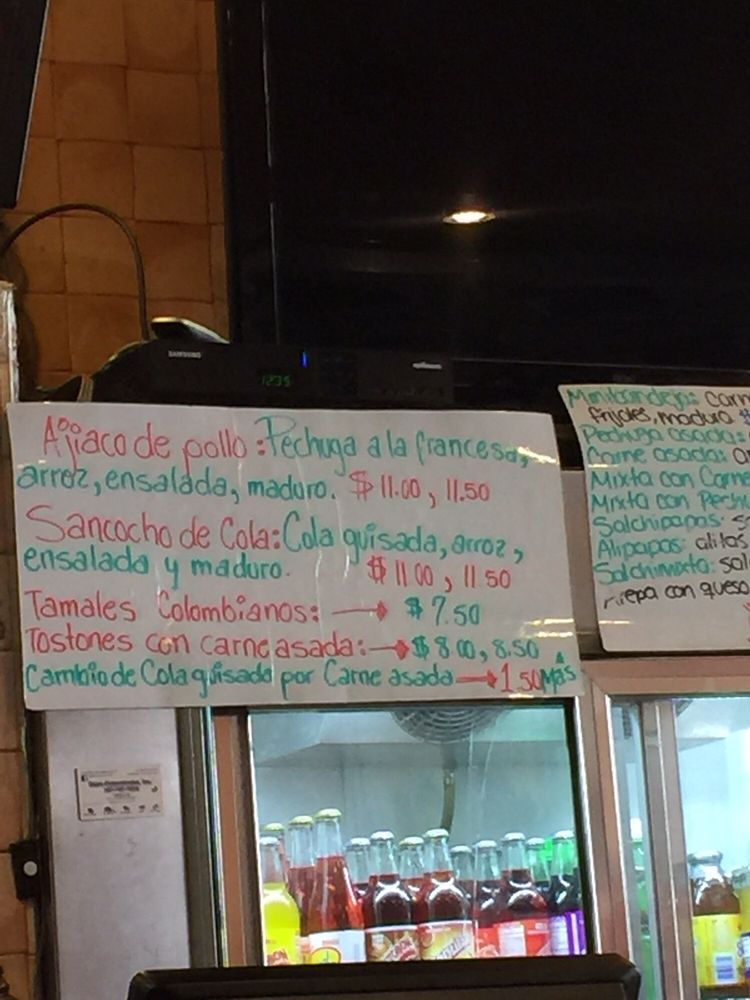 SAMSUNG
1235
Ajiaco de pollo: Pechuga a la francesa,
arroz, ensalada, maduro. $ 11.00, 11.50
Sancocho de Cola: Cola guisada, arroz,
ensalada y maduro. $ 11 00, 11.50
Tamales Colombianos: → $ 7.50
Tostones con carne asada: → $ 8 00, 8.50
Cambio de Cola guisada por Carne asada → 1.50 Más
Minibandeja: carn
frijoles, maduro $
Pechuga asada:
Carne asada:
Mixta con Carne
Mixta con Pech
Salchipapas: s
Alipapas: alitas
Salchimixta: sal
Arepa con queso